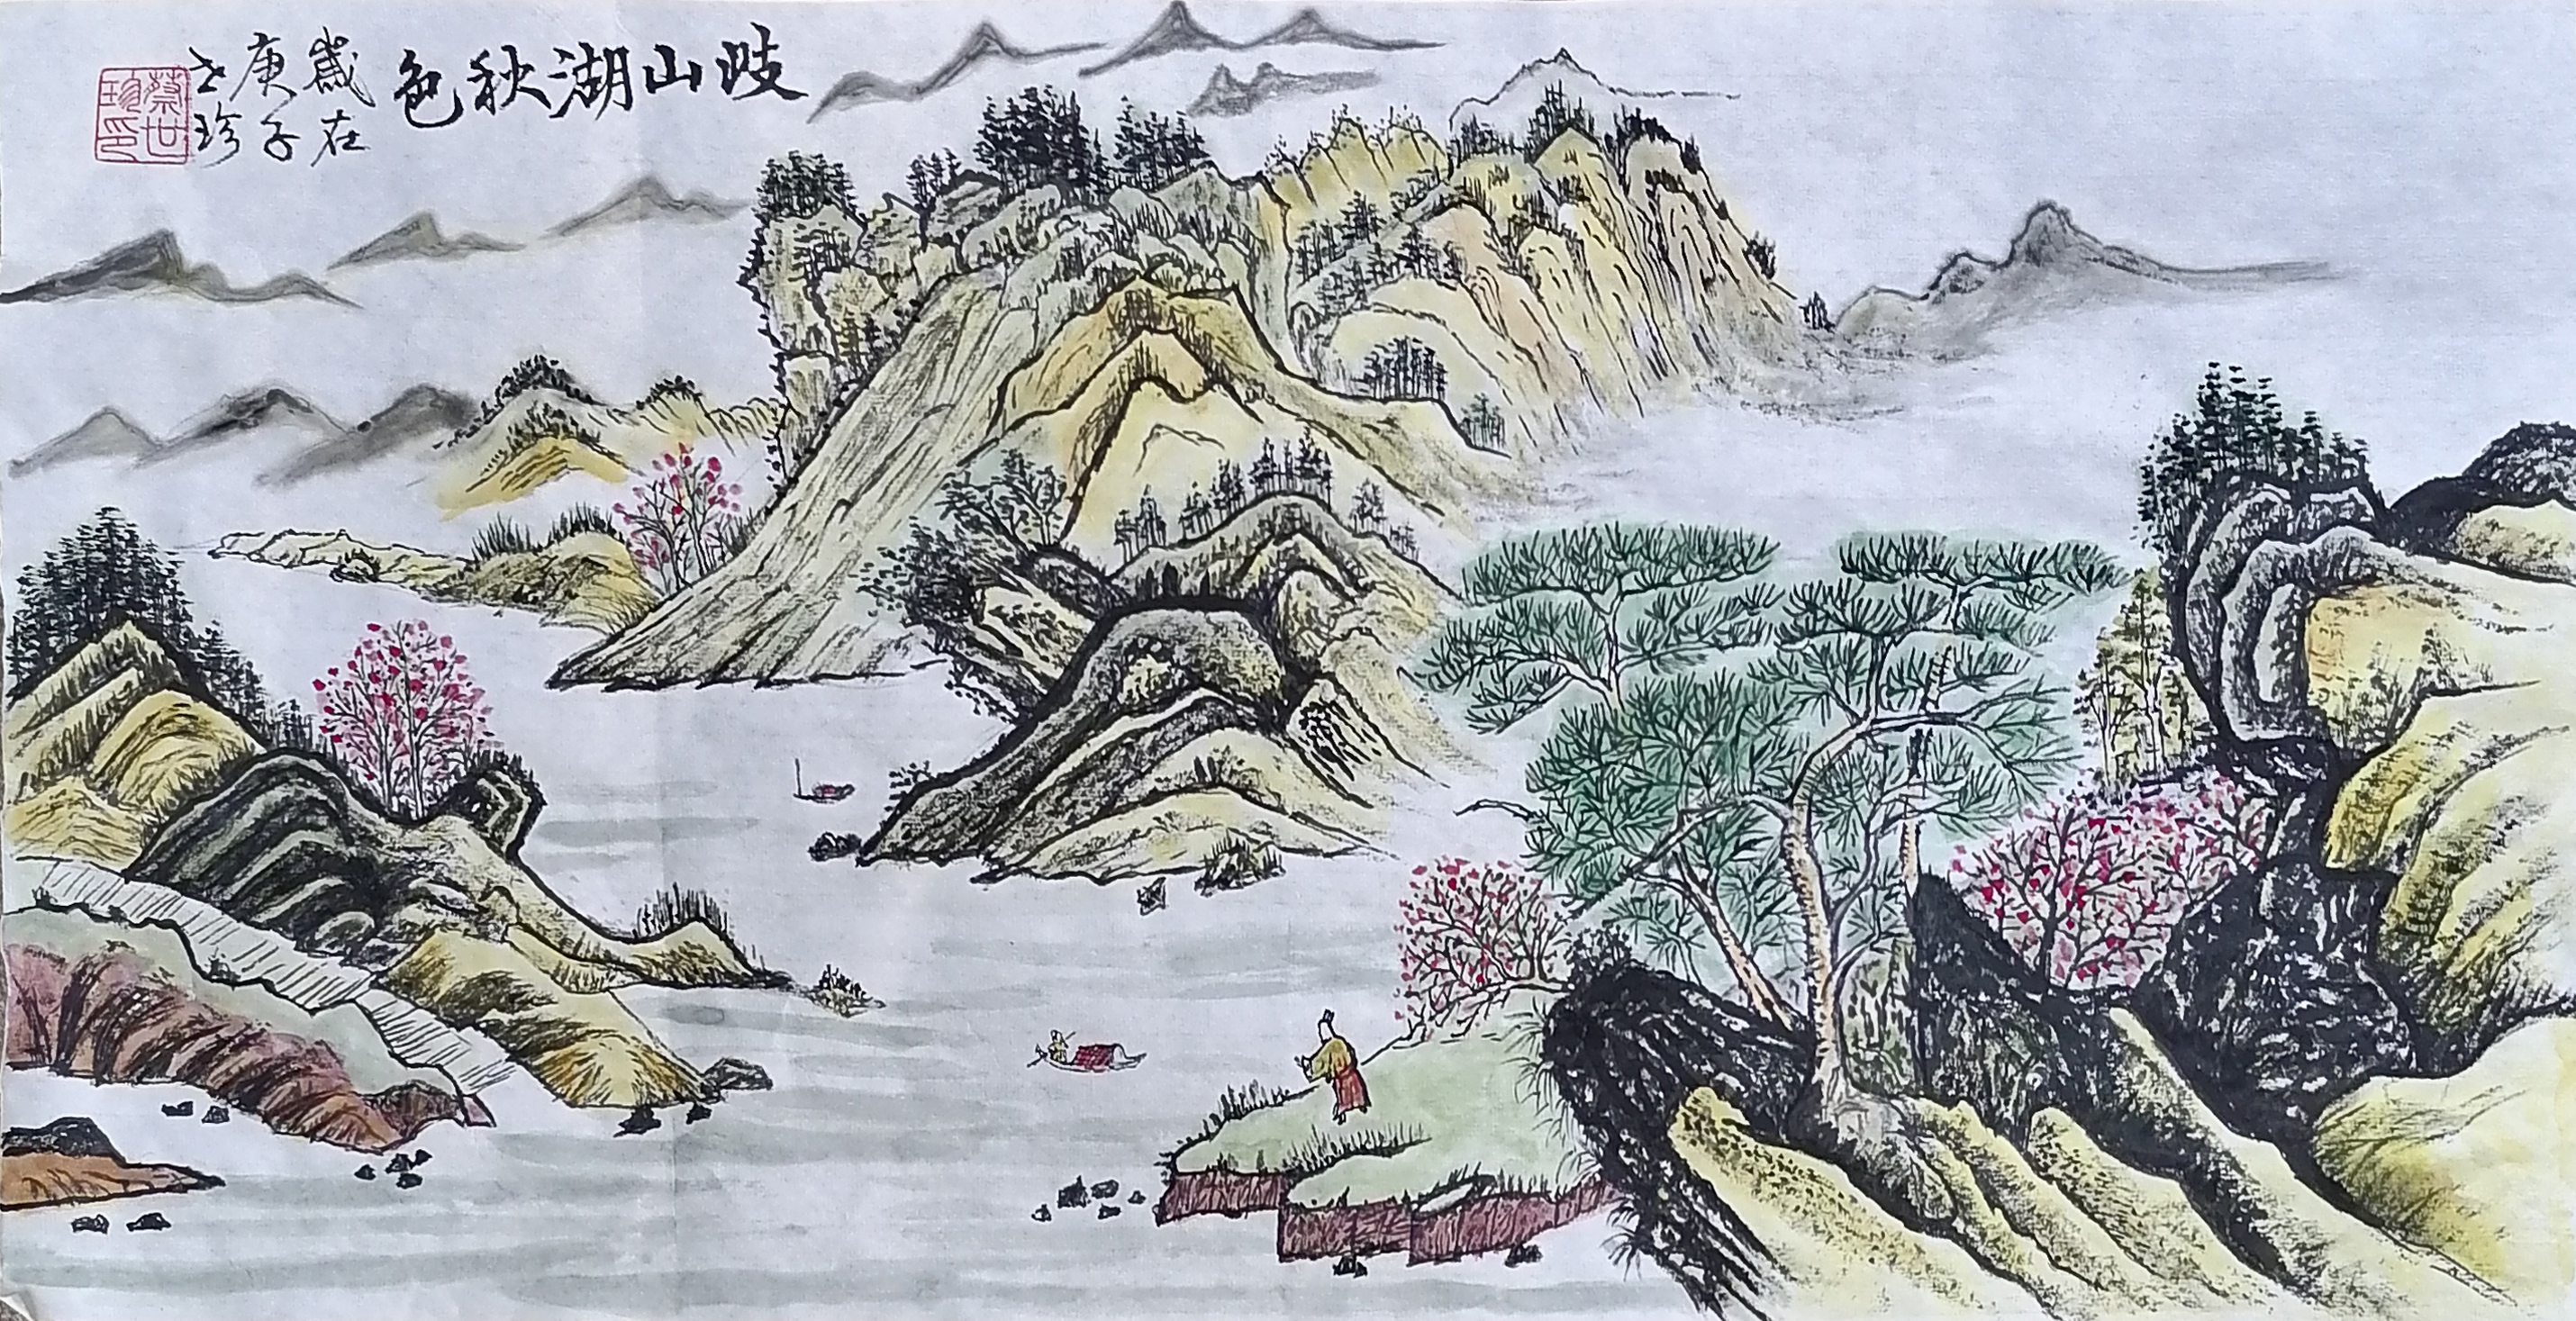 歧山湖秋色
歲在
庚子
世珍
蔡世
珍印